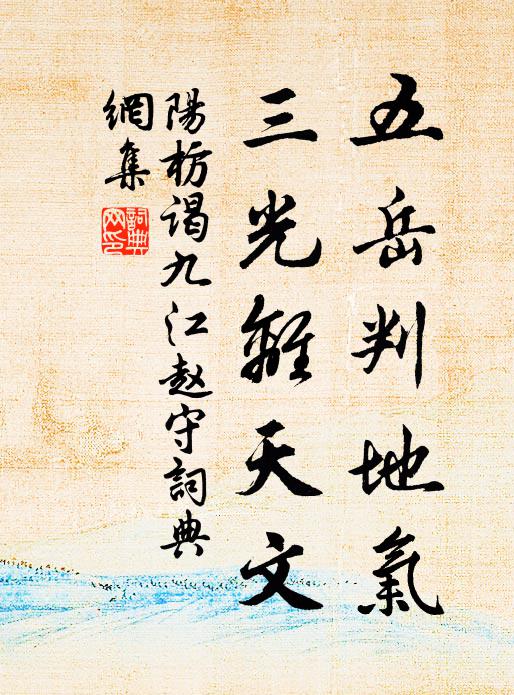 五岳判地氣
三光離天文
陽枋谒九江赵守詞典
網集
詞典
网印